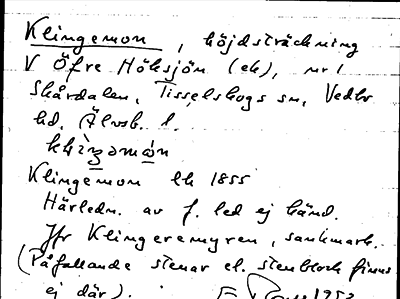 Klingemon, höjdsträckning
V Öfre Höksjön (ek), nr 1
Skårdalen, Tisselskogs sn, Vedbo
hd, Älvsb. l.
Klingemon Ek 1855
Härledn. av f. led ej känd.
Jfr Klingeremyren, sankmark.
(Påfallande stenar el. stenblock finns
ej där). 1952